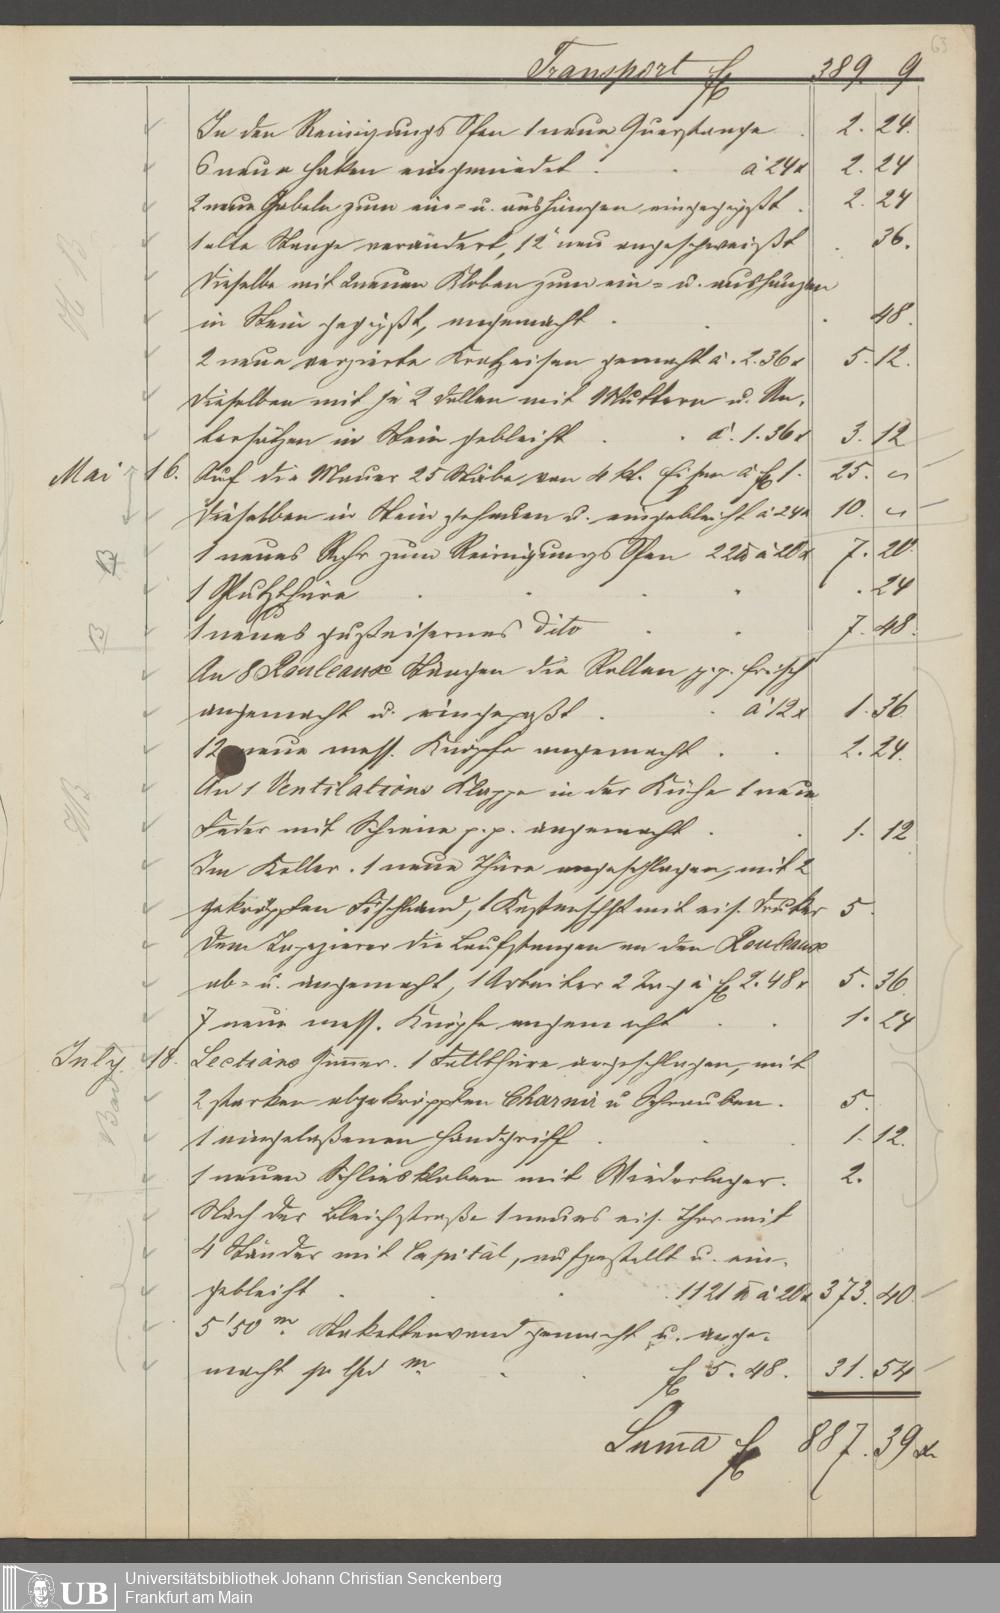 63
Transport f 389. 9
In den Reinigungs Ofen 1 neue Querstange . 2. 24.
6 neue Haken eingenietet . . à 24 x 2. 24
2 neue Gabeln zum ein- u. aushängen eingegypst . 2. 24
1 alte Stange verändert, 12" neu angeschweißt . 36.
Dieselbe mit 2 neuen Kloben zum ein- u. aushängen
in Stein gegypst, angemacht . . . 48.
2 neue verzierte Kratzeisen gemacht à . 2. 36 x 5. 12.
Dieselben mit je 2 Dollen mit Muttern u. Un-
tersätzen in Stein gebleiht . . à . 1. 36 x 3. 12
Mai 16. Auf die Mauer 25 Stäbe von 4 kt. Eisen à f 1. 25. -
Dieselben in Stein gehauen u. eingebleiht à 24 x 10. -
1 neues Rohr zum Reinigungs Ofen 22 ℔ à 20 x 7. 20.
1 Putzthüre . . . . . 24
1 neues gußeisernes dito . . 7. 48.
An 8 Rouleaux Stangen die Rollen p.p. frisch
angemacht u. eingepaßt . . à 12 x 1. 36
12 neue mess. Knöpfe angemacht . . 2. 24.
An 1 Ventilations Klappe in der Küche 1 neue
Feder mit Schiene p.p. angemacht . . 1. 12
Im Keller. 1 neue Thüre angeschlagen, mit 2
gekröpften Fischband, 1 Kastenschloß mit eis. Drücker 5.
Dem Tapezierer die Laufstangen an den Rouleaux
ab- u. angemacht, 1 Arbeiter 2 Tag à f 2. 48 x 5. 36
7 neue mess. Knöpfe angemacht . . 1. 24
July. 18. Sections Zimmer. 1 Fallthüre angeschlagen, mit
2 starken abgekröpften Charnir u Schrauben . 5.
1 eingelaßenen Handgriff . . . 1. 12.
1 neuen Schlieskloben mit Wiederlager . 2.
Nach der Bleichstraße 1 neues eis. Thor mit
4 Ständer mit Capitäl, aufgestellt u. ein-
gebleiht . . . . 1121 ℔ à 20 x 373. 40
5'50 m. Staketenwand gemacht u. ange-
macht pr lfd m. . . f 5. 48. 31. 54
Suma f 887. 39 x
UB Universitätsbibliothek Johann Christian Senckenberg
Frankfurt am Main